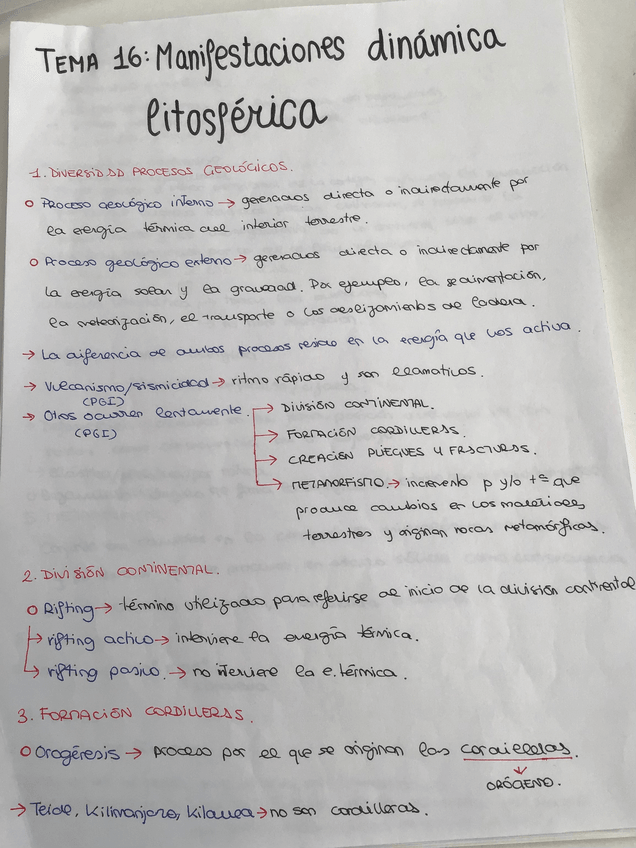 TEMA 16: Manifestaciones dinámica
litosférica
1. DIVERSIDAD PROCESOS GEOLÓGICOS.
o Proceso geológico interno → generados directa o indirectamente por
la energía térmica del interior terrestre.
o Proceso geológico externo → generados directa o indirectamente por
la energía solar y la gravedad. Por ejemplo, la sedimentación,
la meteorización, el transporte o los deslizamientos de ladera.
→ La diferencia de ambos procesos reside en la energía que los activa.
→ Vulcanismo/sismicidad → ritmo rápido y son llamativos.
(PGI)
→ Otros ocurren lentamente. → DIVISIÓN CONTINENTAL.
(PGI)
→ FORMACIÓN CORDILLERAS.
→ CREACIÓN PLIEGUES Y FRACTURAS.
→ METAMORFISMO → incremento p y/o tª que
produce cambios en los materiales
terrestres y originan rocas metamórficas.
2. DIVISIÓN CONTINENTAL.
o Rifting → término utilizado para referirse al inicio de la división continental
→ rifting activo → interviene la energía térmica.
→ rifting pasivo. → no iterviere la e. térmica.
3. FORMACIÓN CORDILLERAS.
o Orogénesis → proceso por el que se originan las cordilleras.
↓
ORÓGENO.
→ Teide, Kilimanjaro, Kilauea → no son cordilleras.